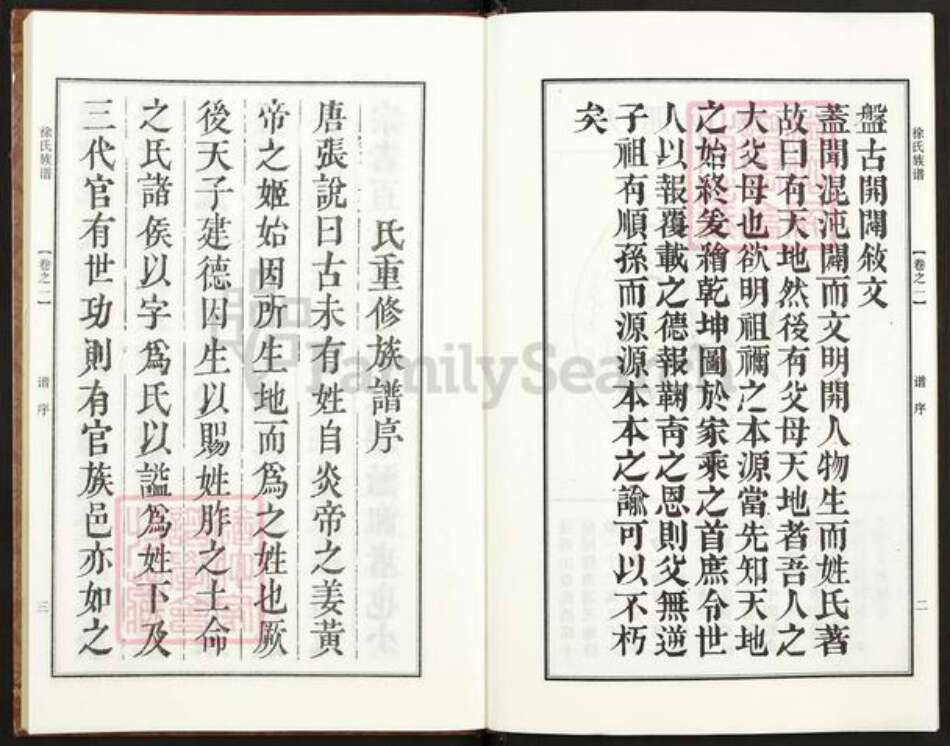 徐氏族谱
【卷之一】
谱序
二
盤古開闢敘文
蓋聞混沌闢而文明開人物生而姓氏著
故曰有天地然後有父母天地者吾人之
大父母也欲明祖禰之本源當先知天地
之始終爰繪乾坤圖於家乘之首庶令世
人以報覆載之德報鞠育之恩則父無逆
子祖有順孫而源源本本之諭可以不朽
矣
氏重修族譜序
唐張說曰古未有姓自炎帝之姜黃
帝之姬始因所生地而為之姓也厥
後天子建德因生以賜姓胙之土命
之氏諸侯以字為氏以謚為姓下及
三代官有世功則有官族邑亦如之
徐氏族谱
【卷之一】
谱序
三
FamilySearch